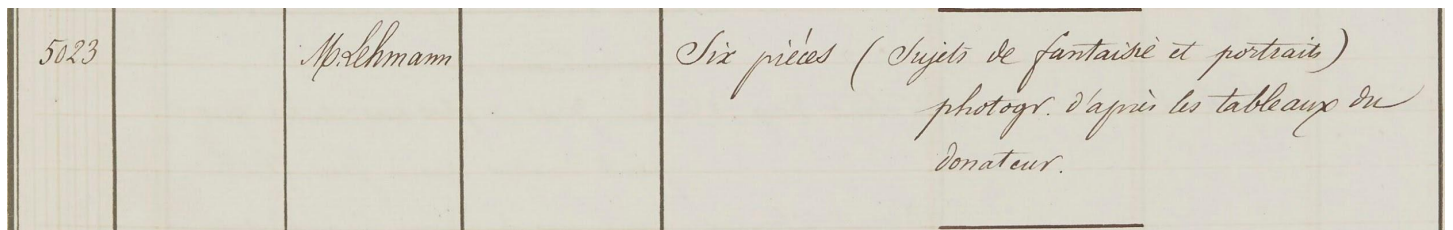 5023 M. Lehmann Six pièces (Sujets de fantaisie et portraits)
photogr. d'après les tableaux du
donateur.